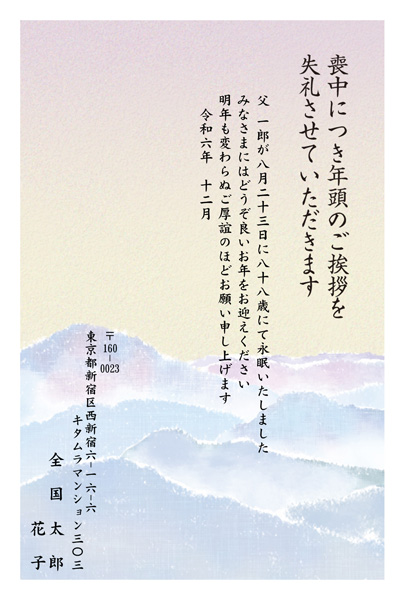 喪中につき年頭のご挨拶を
失礼させていただきます
父 一郎が八月二十三日に八十八歳にて永眠いたしました
みなさまにはどうぞ良いお年をお迎えください
明年も変わらぬご厚誼のほどお願い申し上げます
令和六年 十二月
〒160-0023
東京都新宿区西新宿六-一六-六
キタムラマンション三〇三
全国太郎
花子